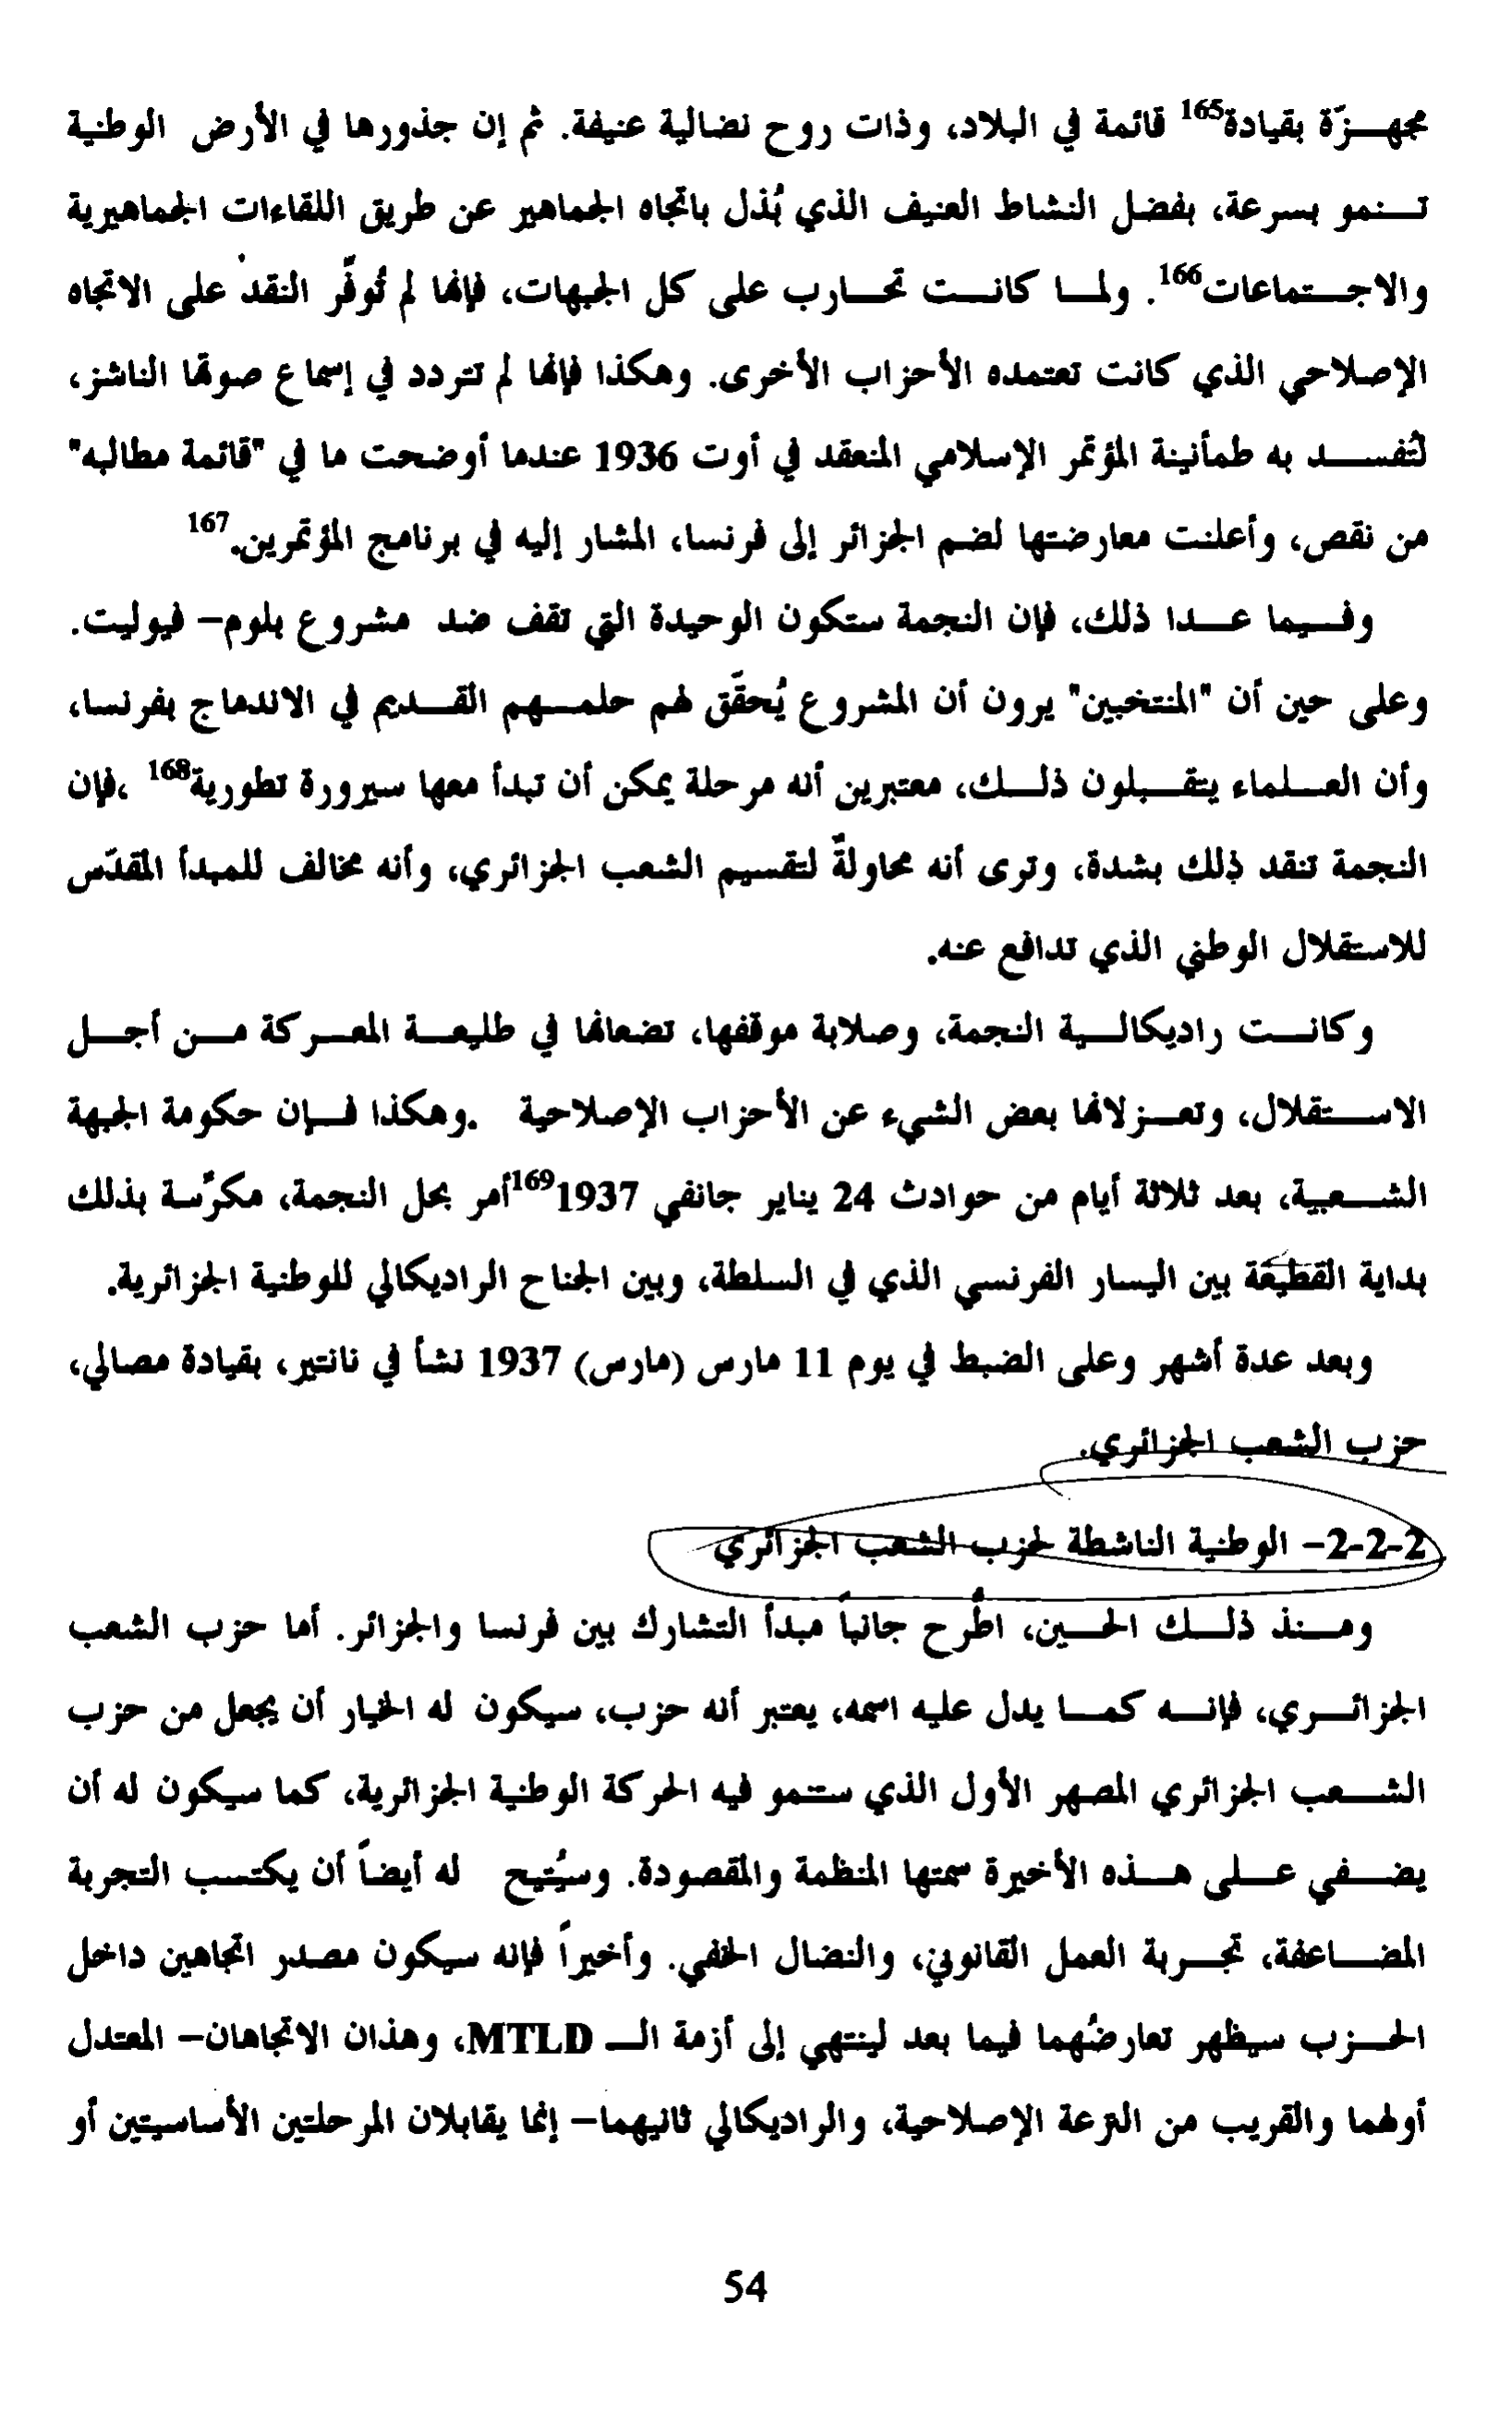 مجهزّة بقيادة165 قائمة في البلاد، وذات روح نضالية عنيفة. ثم إن جذورها في الأرض الوطنية
تنمو بسرعة، بفضل النشاط العنيف الذي بُذل باتجاه الجماهير عن طريق اللقاءات الجماهيرية
والاجتماعات166. ولما كانت تحارب على كل الجبهات، فإنها لم تُوفّر النقد على الاتجاه
الإصلاحي الذي كانت تعتمده الأحزاب الأخرى. وهكذا فإنها لم تتردد في إسماع صوتها الناشز،
لتُفسد به طمأنينة المؤتمر الإسلامي المنعقد في أوت 1936 عندما أوضحت ما في "قائمة مطالبه"
من نقص، وأعلنت معارضتها لضم الجزائر إلى فرنسا، المشار إليه في برنامج المؤتمرين.167
وفيما عدا ذلك، فإن النجمة ستكون الوحيدة التي تقف ضد مشروع بلوم- فيوليت.
وعلى حين أن "المنتخبين" يرون أن المشروع يُحقّق لهم حلمهم القديم في الاندماج بفرنسا،
وأن العلماء يتقبلون ذلك، معتبرين أنه مرحلة يمكن أن تبدأ معها سيرورة تطورية168 ،فإن
النجمة تنقد ذلك بشدة، وترى أنه محاولةً لتقسيم الشعب الجزائري، وأنه مخالف للمبدأ المقدّس
للاستقلال الوطني الذي تدافع عنه.
وكانت راديكالية النجمة، وصلابة موقفها، تضعانها في طليعة المعركة من أجل
الاستقلال، وتعزلانها بعض الشيء عن الأحزاب الإصلاحية .وهكذا فإن حكومة الجبهة
الشعبية، بعد ثلاثة أيام من حوادث 24 يناير جانفي 1937169أمر بحل النجمة، مكرّسة بذلك
بداية القطيعة بين اليسار الفرنسي الذي في السلطة، وبين الجناح الراديكالي للوطنية الجزائرية.
وبعد عدة أشهر وعلى الضبط في يوم 11 مارس (مارس) 1937 نشأ في نانتير، بقيادة مصالي،
حزب الشعب الجزائري.
2-2-2- الوطنية الناشطة لحزب الشعب الجزائري
ومنذ ذلك الحين، اطُّرح جانباً مبدأ التشارك بين فرنسا والجزائر. أما حزب الشعب
الجزائري، فإنه كما يدل عليه اسمه، يعتبر أنه حزب، سيكون له الخيار أن يجعل من حزب
الشعب الجزائري المصهر الأول الذي ستنمو فيه الحركة الوطنية الجزائرية، كما سيكون له أن
يضفي على هذه الأخيرة سمتها المنظمة والمقصودة. وسيُتيح له أيضاً أن يكتسب التجربة
المضاعفة، تجربة العمل القانوني، والنضال الخفي. وأخيراً فإنه سيكون مصدر اتجاهين داخل
الحزب سيظهر تعارضُهما فيما بعد لينتهي إلى أزمة الـ MTLD، وهذان الاتجاهان- المعتدل
أولهما والقريب من النزعة الإصلاحية، والراديكالي ثانيهما- إنما يقابلان المرحلتين الأساسيتين أو
54